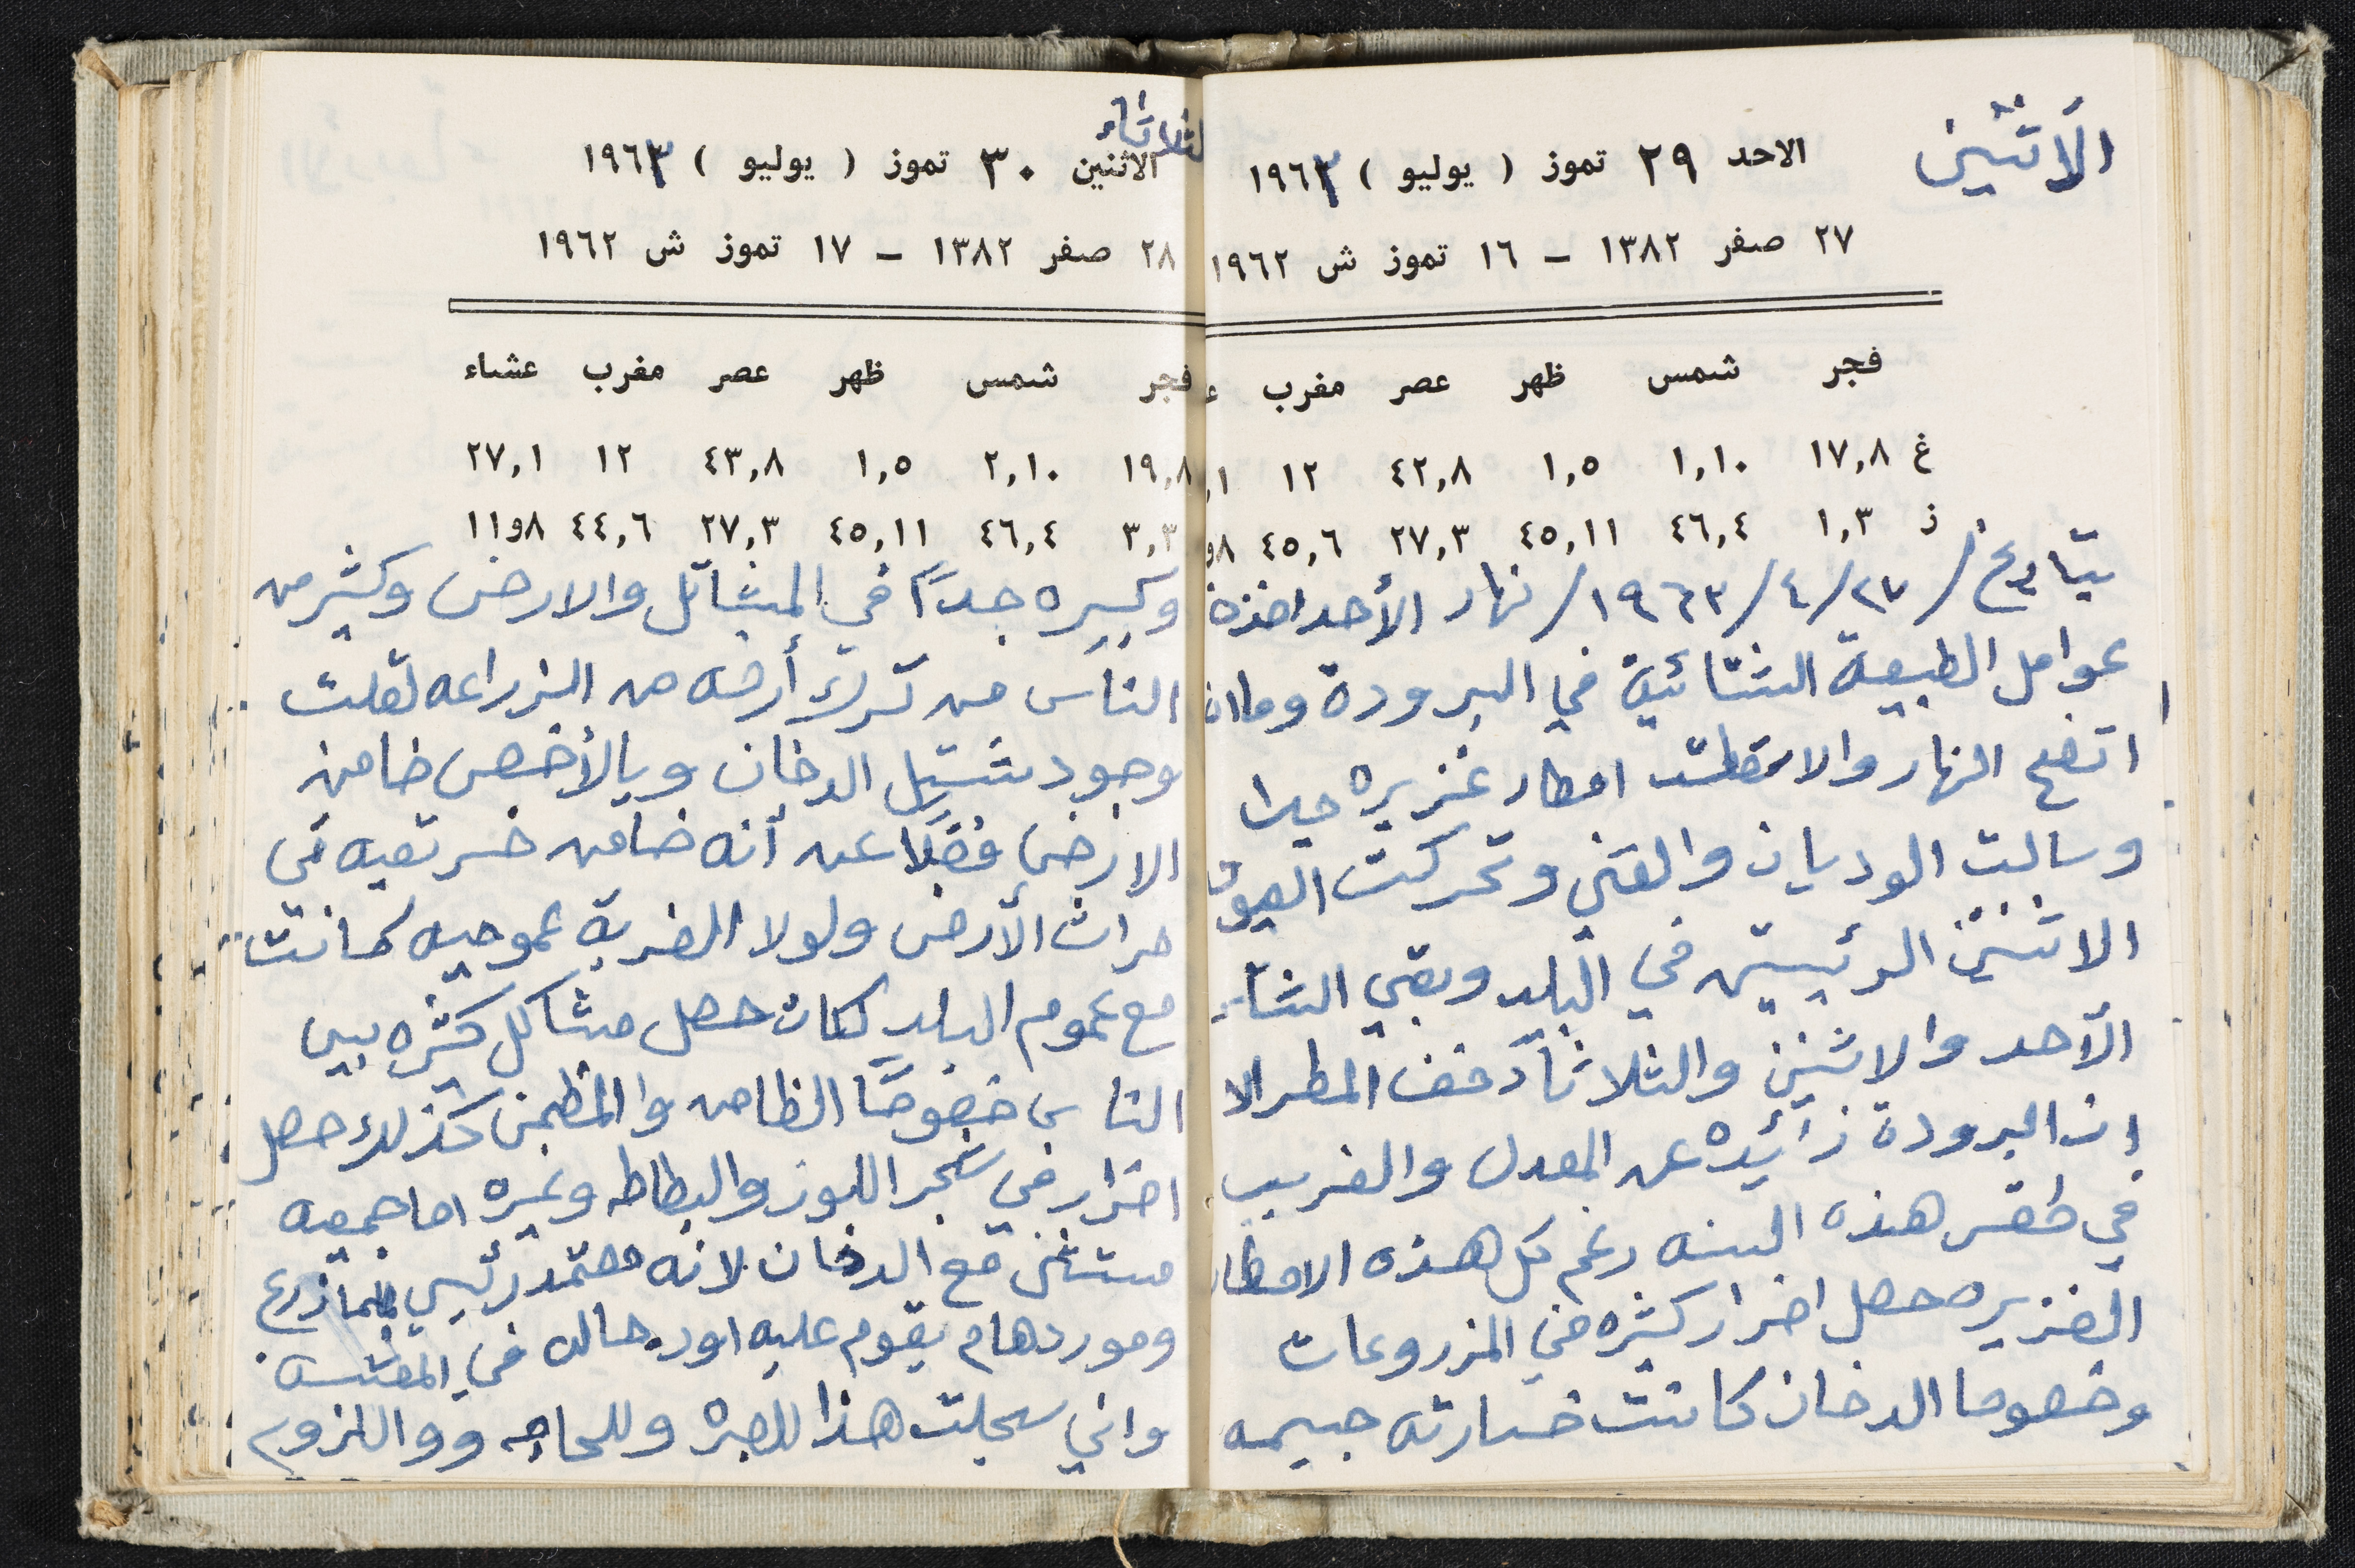 الاثنين
الاحد ٢٩ تموز ( يوليو ) ١٩٦٣
٢٧ صفر ١٣٨٢ – ١٦ تموز ش ١٩٦٢
فجر شمس ظهر عصر مغرب ع
غ ١٧,٨ ١,١٠ ١,٥ ٤٢,٨ ١٢ ١,
ز ١,٣ ٤٦,٤ ٤٥,١١ ٢٧,٣ ٤٥,٦ ٨و
بتاريخ /٢٧/٤/١٩٦٣/ نهار الأحد اخذة
عوامل الطبيعة الشتائية في البرودة وما ان
اتضح النهار والا سقطت امطار غزيره جدا
وسالت الوديان والقني وتحركت العيون
الاثنين الرئيسيتين في البلد وبقي الشتاء
الأحد والاثنين والثلاثاء وخف المطر الا
إن البرودة زائيده عن المعدل والغريب
في طقس هذه السنه رغم كل هذه الامطار
الغزيره حصل اضرار كثيره في المزروعات
وخصوصا الدخان كانت خسارته جسيمه
الثلاثاء
الاثنين ٣٠ تموز ( يوليو ) ١٩٦٣
٢٨ صفر ١٣٨٢ – ١٧ تموز ش ١٩٦٢
فجر شمس ظهر عصر مغرب عشاء
١٩,٨ ٢,١٠ ١,٥ ٤٣,٨ ١٢ ٢٧,١
٣,٣ ٤٦,٤ ٤٥,١١ ٢٧,٣ ٤٤,٦ ٨و١١
وكبيره جداً في المشاتل والارض وكثير من
الناس من ترك أرضه من الزراعه لقلت
وجود شتيل الدخان وبالأخص ضامن
الارض فضلا عن أنه ضامن خسر تعبه في
حراث الأرض ولولا الضربة عموميه كانت
مع عموم البلد لكان حصل مشاكل كثيره بين
الناس خصوصًا الظامن والمظمن كذلك حصل
اضرار في شجر اللوز والبطاطه وغيره اما جميعه
مستغنى مع الدخان لانه معتمد رئيسي للمازرع
ومورد هام يقوم عليه اود حاله في المعيشه
واني سجلت هذا للعبره وللحاجه ووالزوم